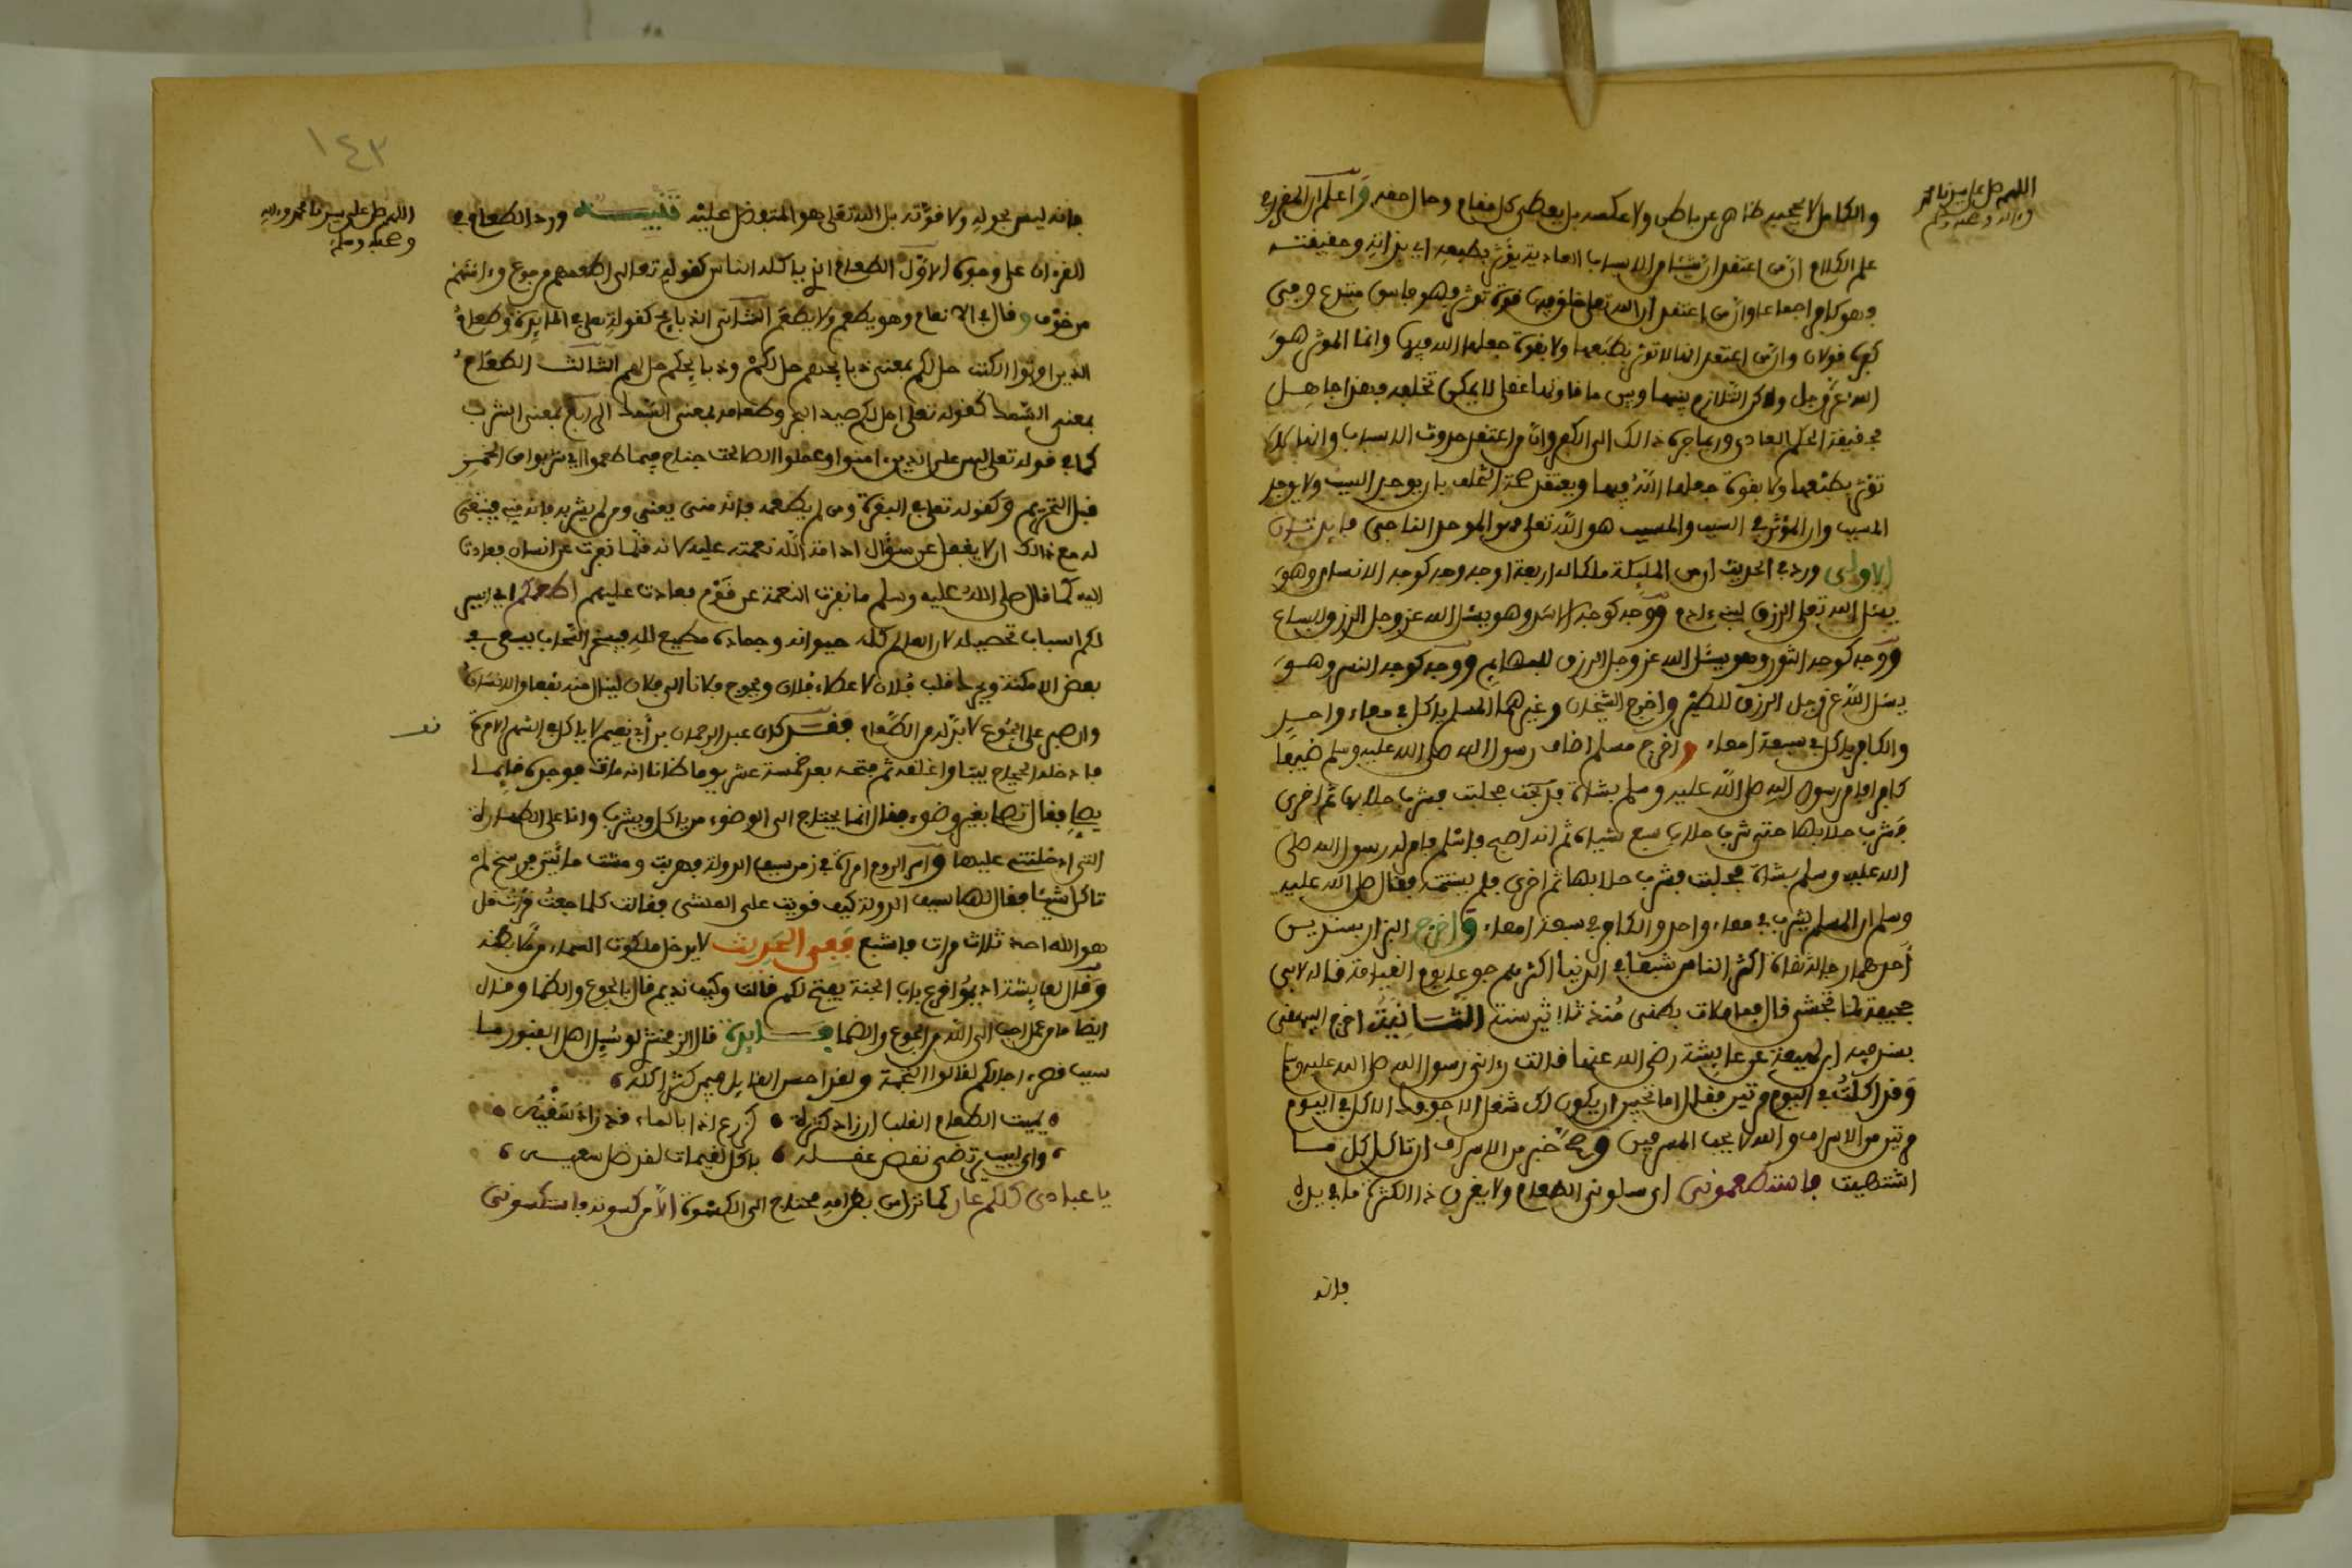 اللهم صل على سيدنا محمد
وءاله وصحبه وسلم
والكامل لا يحجبه ظاهر عن باطن ولا عكسه بل يعطى كل مقام وحال حقه واعلم ان المقرر في
علم الكلام ان من اعتقد ان شيئا من الاسباب العادية يؤثر بطبعه اي بذاته وحقيقته
فهو كافر اجماعا وان من اعتقد ان الله تعلى خلق فيها قوة تؤثر فهو فاسق مبتدع وفي
كفره قولان وان من اعتقد انها لا تؤثر بطبعها ولا بقوة جعلها الله فيها وانما المؤثر هو
الله عز وجل ولاكن التلازم بينها وبين ما قارنها عقلي لا يمكن تخلفه فهذا جاهل
بحقيقة الحكم العادي وربما جره ذالك الى الكفر وان من اعتقد حدوث الاسباب وانها لا
تؤثر بطبعها ولا بقوة جعلها الله فيها ويعتقد صحة التخلف بان يوجد السبب ولا يوجد
المسبب وان المؤثر في السبب والمسبب هو الله تعلى فهو الموحد الناجي فايدتان
الاولى ورد في الحديث ان من الملٸكة ملكا له اربعة اوجه وجه كوجه الانسان وهو
يسئل الله تعلى الرزق لبني ءادم ووجه كوجه الاسد وهو يسئل الله عز وجل الرزق للسباع
ووجه كوجه الثور وهو يسئل الله عز وجل الرزق للبهايم ووجه كوجه النسر وهو
يسئل الله عز وجل الرزق للطير واخرج الشيخان وغيرهما المسلم ياكل في معاء واحد
والكافر ياكل في سبعة امعاء واخرج مسلم اضاف رسول الله صلى الله عليه وسلم ضيفا
كافرا فامر رسول الله صلى الله عليه وسلم بشاة فحلبت فشرب حلابها ثم اخرى
فشرب حلابها حتى شرب حلاب سبع شياه ثم انه اصبح فاسلم فامر له رسول الله صلى
الله عليه وسلم بشاة فحلبت فشرب حلابها ثم اخرى فلم يستتمه فقال صلى الله عليه
وسلم ان المسلم يشرب في معاء واحد والكافر في سبعة امعاء واخرج البزار بسندين
احدهما رجاله ثقاة اكثر الناس شبعا في الدنيا اكثرهم جوعا يوم القيامة قاله لابي
جحيفة لما تجشى قال فما ملات بطني منذ ثلاثين سنة الثانية اخرج البيهقي
بسند فيه ابن لهيعة عن عايشة رضي الله عنها قالت رءاني رسول الله صلى الله عليه وسلم
وقد اكلت في اليوم مرتين فقال اما تحبين ان يكون لك شغل الا جوفك الاكل في اليوم
مرتين من الاسراف والله لا يحب المسرفين وصح خبر من الاسراف ان تاكل كل ما
اشتهيت فاستطعموني اي سلوني الطعام ولا يغرن ذا الكثرة ما في يده
فانه
١٤٣
اللهم صل على سيدنا محمد وءاله
وصحبه وسلم
فانه ليس بحوله ولا قوته بل الله تعلى هو المتفضل عليه تنبيه ورد الطعام في
القرءان على وجوه الاول الطعام الذي ياكله الناس كقوله تعالى اطعمهم من جوع وءامنهم
من خوف وقال في الانعام وهو يطعم ولا يطعم الثاني الذبايح كقوله تعلى في المايدة وطعام
الذين اوتوا الكتب حل لكم بمعنى ذبايحهم حل لكم وذبايحكم حل لهم الثالث الطعام
بمعنى السمك كقوله تعلى احل لكم صيد البحر وطعامه بمعنى السمك الرابع بمعنى الشرب
كما في قوله تعلى ليس على الذين ءامنوا وعملوا الصالحت جناح فيما طعموا اي شربوا من الخمر
قبل التحريم وكقوله تعلى في البقرة ومن لم يطعمه فانه مني يعني ومن لم يشربه فانه مني فينبغي
له مع ذالك ان لا يغفل عن سؤال ادامة الله نعمته عليه لانه قلما نفرت عن انسان فعادت
اليه كما قال صلى الله عليه وسلم ما نفرت النعمة عن قوم فعادت عليهم اطعمكم اي ايسر
لكم اسباب تحصيله لان العالم كله حيوانه وجماده مطيع لله فيسخر السحاب يسقي في
بعض الامكنة ويحرك قلب فلان لاعطاء فلان ويحوج فلانا الى فلان لينال منه نفعا والانسان
وان صبر على الجوع لا بد له من الطعام فقد كان عبد الرحمان بن ابي نعيم لا ياكل في الشهر الا مرة
فادخله الحجاج بيتا واغلقه ثم فتحه بعد خمسة عشر يوما ظانا انه مات فوجده قايما
يصلي فقال تصلي بغير وضوء فقال انما يحتاج الى الوضوء من ياكل ويشرب وانا على الطهارة
التي ادخلتني عليها واسر الروم امراة في زمن سيف الدولة فهربت ومشت مايتي فرسخ لم
تاكل شيئا فقال لها سيف الدولة كيف قويت على المشي فقالت كلما جعت قرات قل
هو الله احد ثلاث مرات فاشبع ففي الحديث لا يدخل ملكوت السماء من ملا بطنه
وقال لعايشة اديموا قرع باب الجنة يفتح لكم قالت وكيف نديم قال بالجوع والظما وقال
ايضا ما من عمل احب الى الله من الجوع والضما فايدة قال الزمخشري لو سئل اهل القبور ما
سبب قصر ءاجالكم لقالوا التخمة ولقد احسن القايل فيمن كثر اكله
يميت الطعام القلب ان زاد كثرة كزرع اذا بالماء قد زاد سقيه
واي لبيب يرتضي نقص عقله باكل لقيمات لقد ضل سعيه
يا عبادي كلكم عار كما نزل من بطن امه محتاج الى الكسوة الا من كسوته فاستكسوني